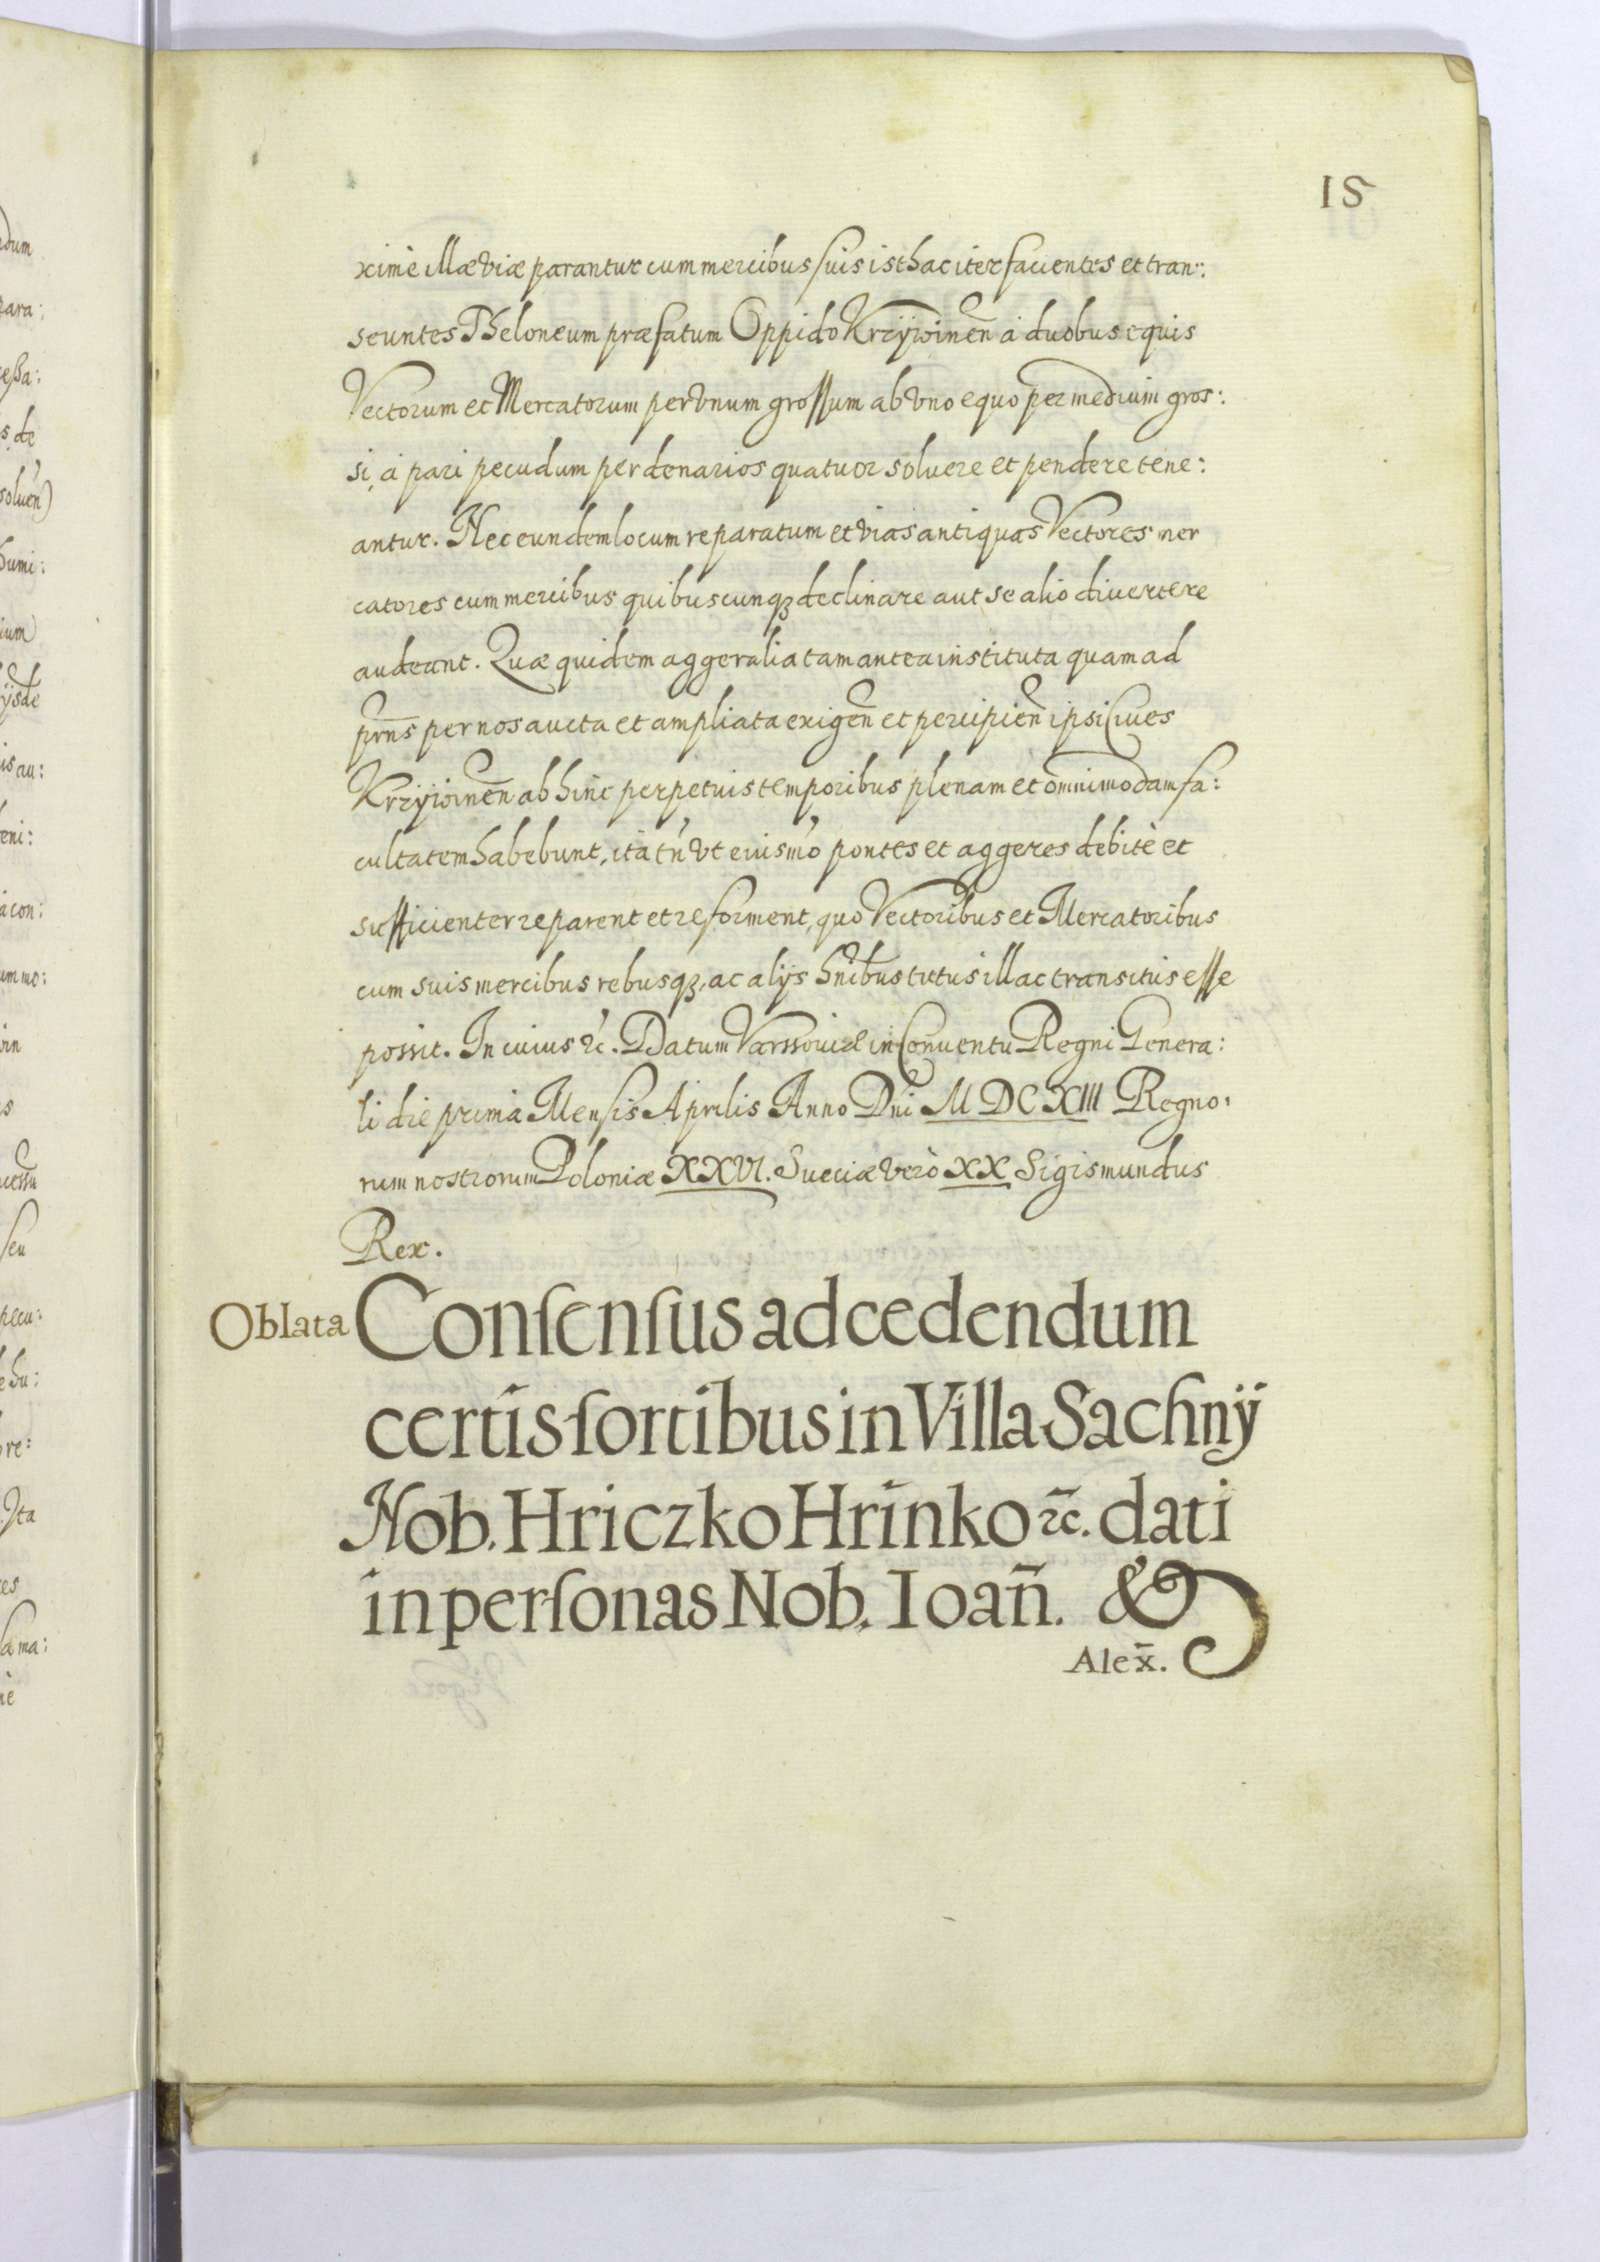 15
ximè illæ viæ parantur cum mercibus suis isthac iter facientes et tran:
seuntes Theloneum præfatum Oppido Krzÿwinen̄ à duobus equis
Vectorum et Mercatorum per vnum grossum ab vno equo per medium gros:
si, à pari pecudum per denarios quatuor soluere et pendere tene:
antur. Nec eundem locum reparatum et vias antiquas Vectores mer
catores cum mercibus quibuscunqꝫ declinare aut se alio divertere
audeant. Quæ quidem aggeralia tam antea instituta quam ad
prn̄s per nos aucta et ampliata exigen̄ et percipien̄ ipsi Ciues
Krzÿwinen̄ ab hinc perpetuis temporibus plenam et omnimodam fa:
cultatem habebunt, ità tn̄ vt eiusmo pontes et aggeres debitè et
sufficienter reparent et reforment, quo Vectoribus et Mercatoribus
cum suis mercibus rebusqꝫ, ac alijs hn̄ibus tutus illac transitus esse
possit. In cuius &c. Datum Varssouiæ in Conuentu Regni Genera:
li die prima Mensis Aprilis Anno Dn̄i MDCXIII Regno:
rum nostrorum Poloniæ XXVI. Sueciæ verò XX Sigismundus
Rex.
Oblata Conſenſus ad cedendum
certis ſortibus in Villa Sachnÿ
Nob. Hriczko Hrinko &c. dati
in perſonas Nob. Ioan̄. &
Alex̄.